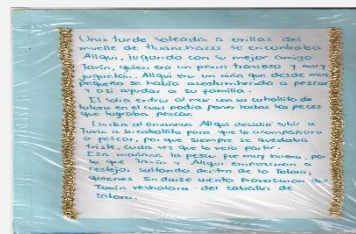 Una tarde soleada a orillas del
muelle de Huanchaco se encontraba
Allqui, jugando con su mejor amigo
Tarín, quien era un perro travieso y muy
juguetón. Allqui era un niño que desde muy
pequeño se había acostumbrado a pescar
y así ayudar a su familia.
El solía entrar al mar con su caballito de
totora en el cual podía poner todos los peces
que lograba pescar.
Allqui decidió subir a
Tarín a su caballito para que lo acompañara
a pescar, por que siempre se quedaba
triste, cada vez que lo veía partir.
Esa mañana la pesca fue muy buena, por
lo que Tarín y Allqui empezaron a
festejar, saltando dentro de la Totora,
quienes sin darse cuenta provocaron que
Tarín resbalara del caballito de
totora.